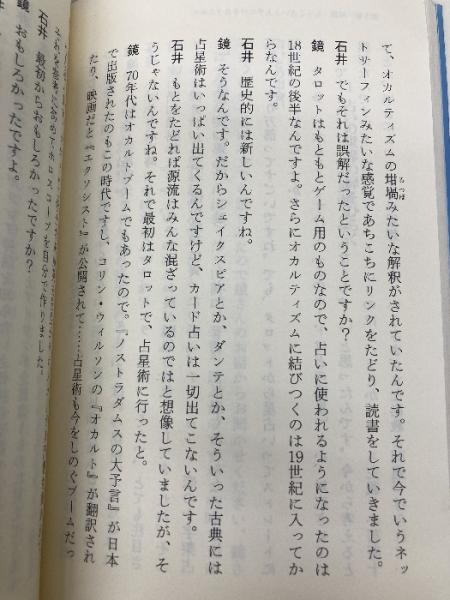 て、オカルティズムの坩堝みたいな解釈がされていたんです。それで今でいうネッ
るつぼ
トサーフィンみたいな感覚であちこちにリンクをたどり、読書をしていきました。
石井 でもそれは誤解だったということですか?
鏡 タロットはもともとゲーム用のものなので、占いに使われるようになったのは
18世紀の後半なんですよ。さらにオカルティズムに結びつくのは19世紀に入ってか
らなんです。
石井 歴史的には新しいんですね。
鏡 そうなんです。だからシェイクスピアとか、ダンテとか、そういった古典には
占星術はいっぱい出てくるんですけど、カード占いは一切出てこないんです。
石井 もとをたどれば源流はみんな混ざっているのではと想像していましたが、そ
うじゃないんですね。それで最初はタロットで、占星術に行ったと。
鏡 70年代はオカルトブームでもあったので。『ノストラダムスの大予言』が日本
で出版されたのもこの時代ですし、コリン・ウィルソンの『オカルト』が翻訳され
たり、映画だと『エクソシスト』が公開されて……占星術も今をしのぐブームだっ
ホロスコープを自分で作りました。
石井 最初からおもしろかったですか?
鏡 おもしろかったですよ。